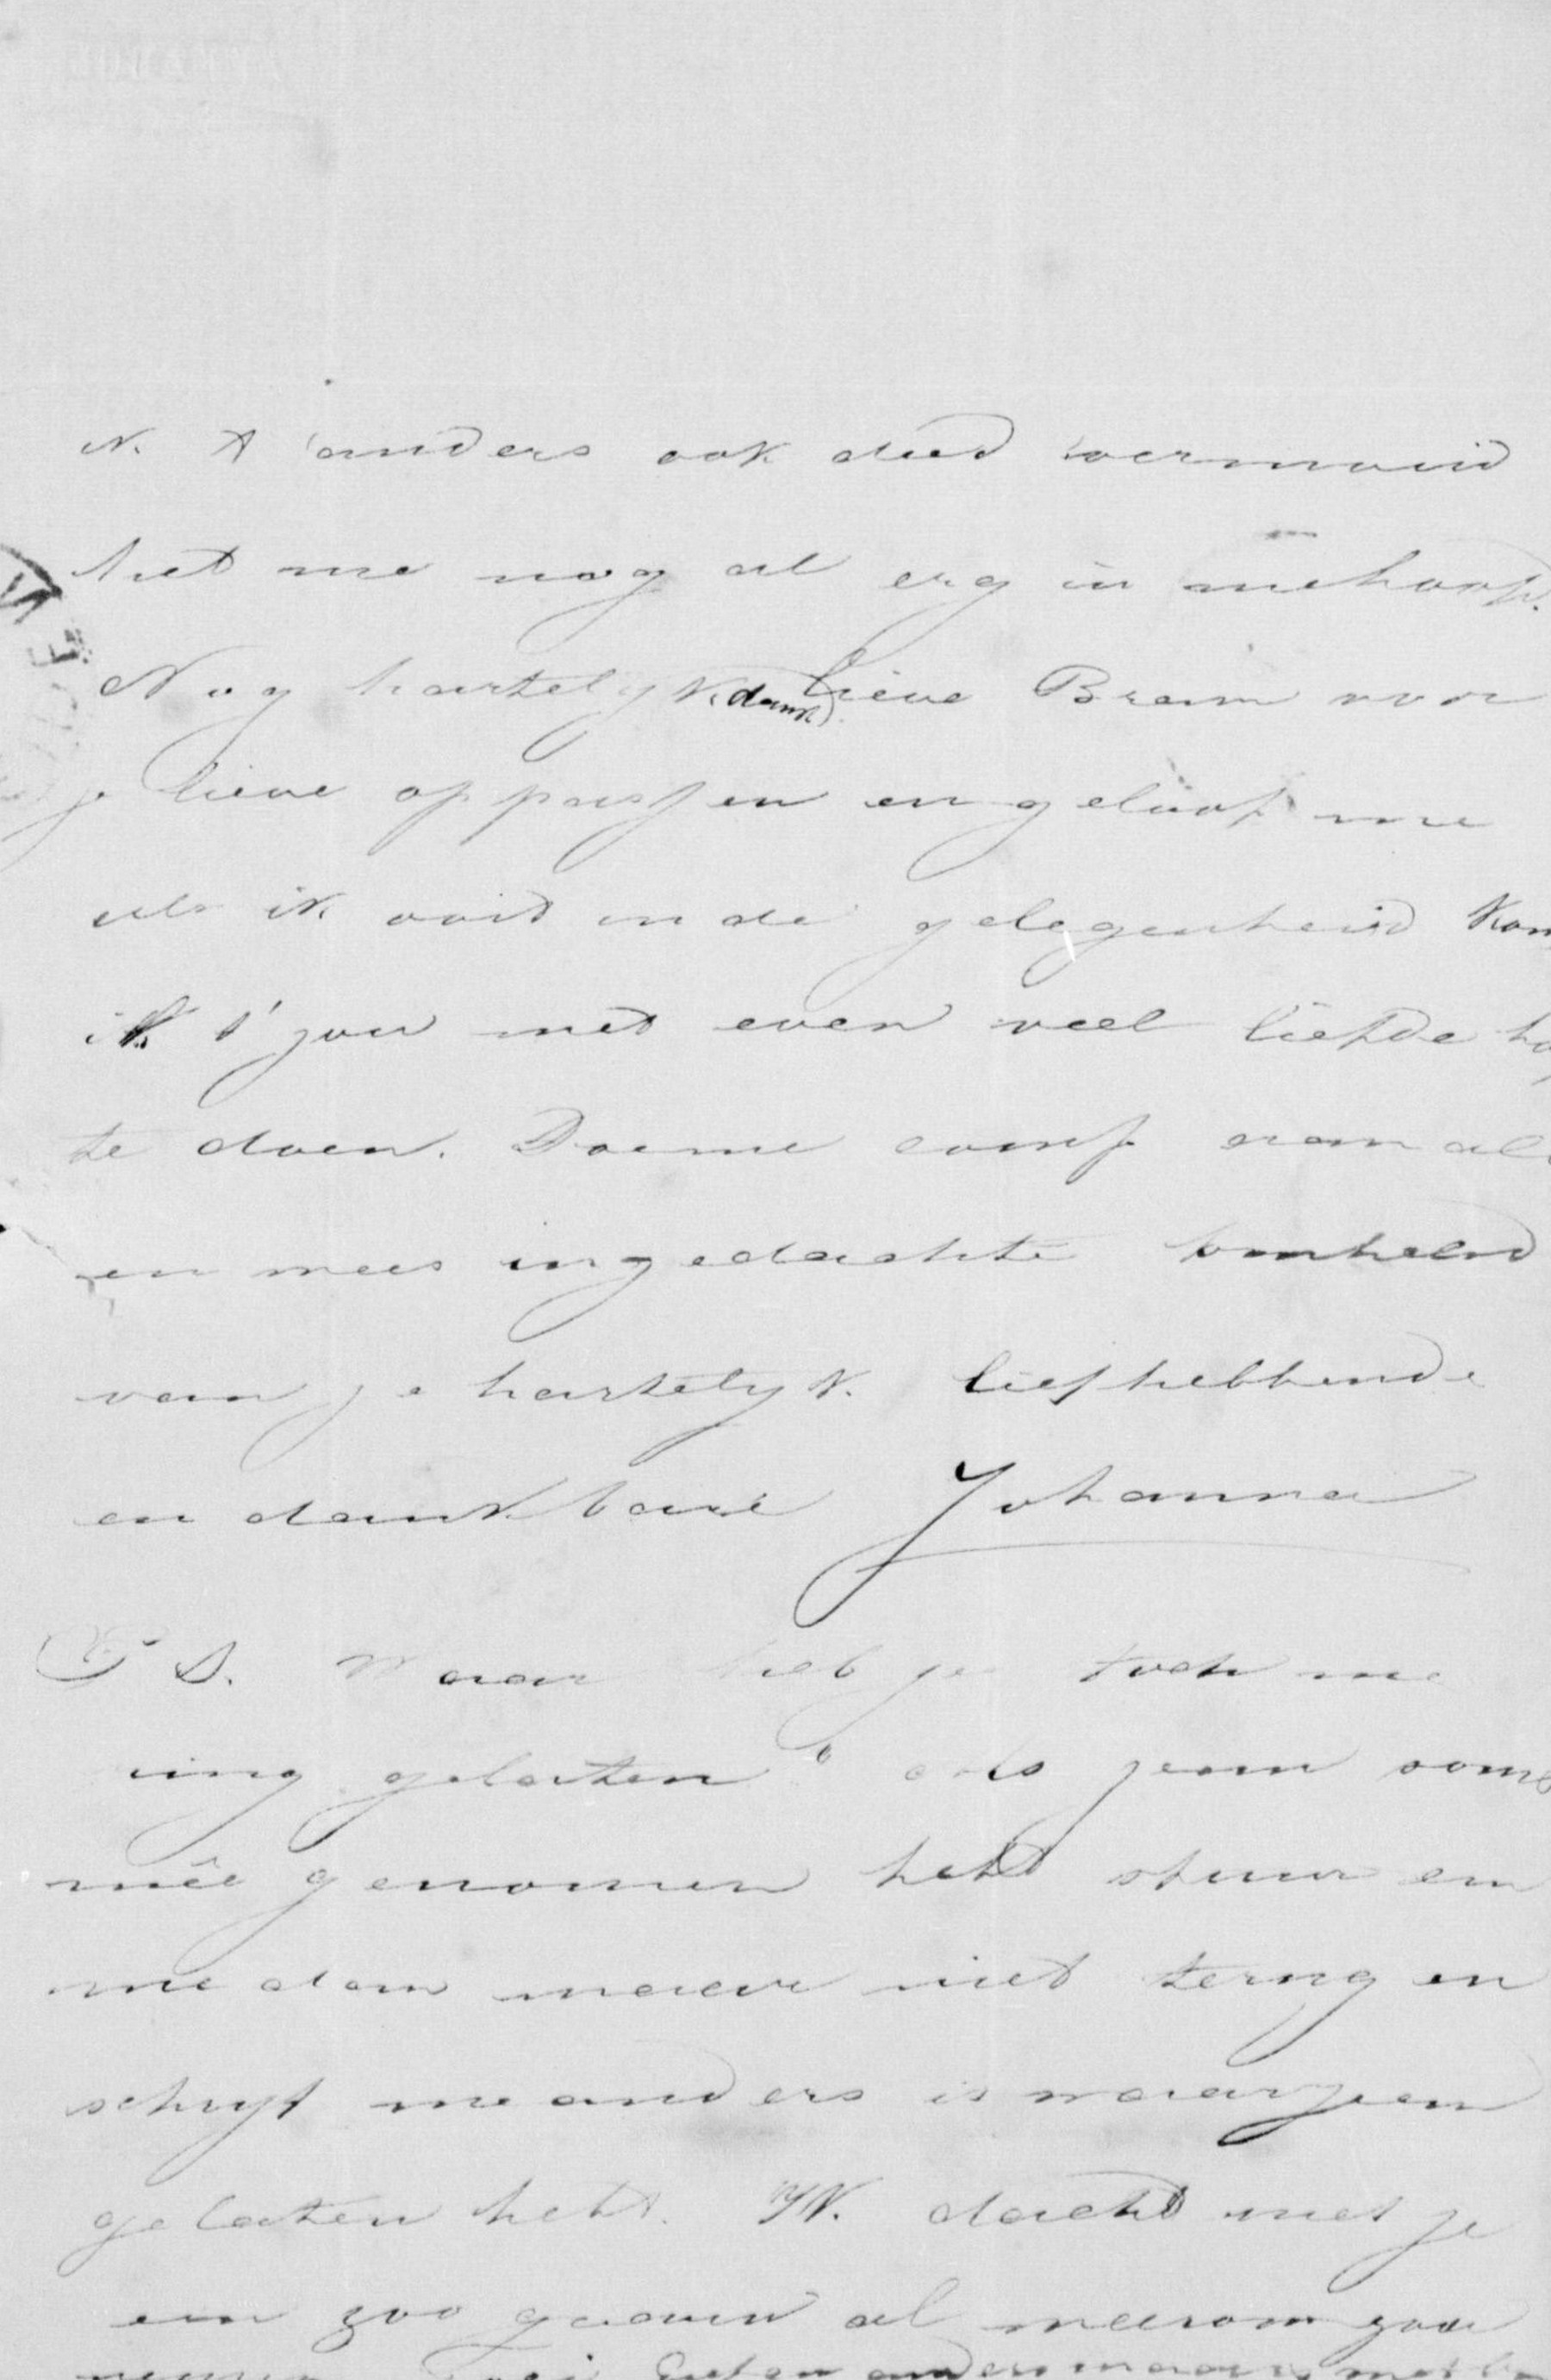 K. A anders ook deed vermoeid
het me nog al erg in mehoofd.
Nog hartelyk (dank) lieve Bram voor
je lieve oppassen en geloof me
als ik ooit in de gelegenheid kom
ik t' jou met even veel liefde ho
te doen. Doeme comp aan al
en mees in gedachte omhelsd
van je hartelyk liefhebbende
en dankbare Johanna
P S. Waar heb je toch me
ring gelaten als jeem soms
meê genomen hebt stuur em
me dan maar niet terug en
schryf me anders is waarjeem
gelaten hebt. Ik dacht met je
em zoo gaauw al